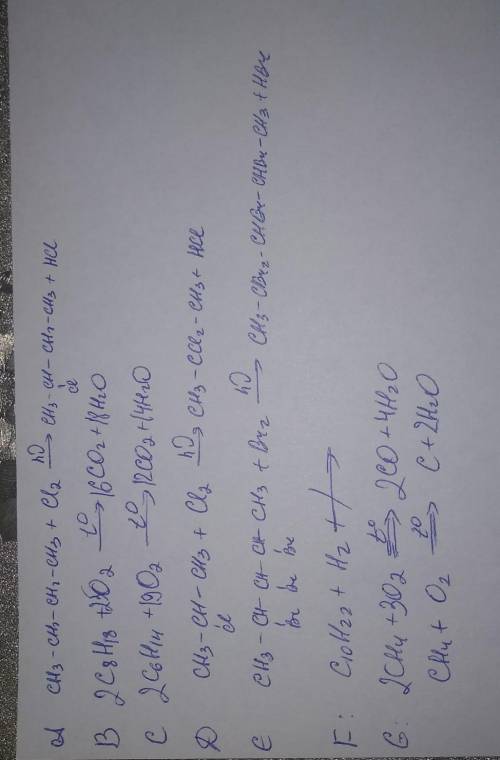 A CH3-CH2-CH2-CH3 + Cl2 hν→ CH3-CH-CH2-CH3 + HCl
Cl
B 2C8H18 + 25O2 t°→ 16CO2 + 18H2O
C 2C6H14 + 19O2 t°→ 12CO2 + 14H2O
D CH3-CH-CH3 + Cl2 hν→ CH3-CCl2-CH3 + HCl
Cl
E CH3-CH-CH-CH-CH3 + Br2 hν→ CH3-CBr2-CHBr-CHBr-CH3 + HBr
Br Br Br
F: C10H22 + H2 ↛
G: 2CH4 + 3O2 t°⇒ 2CO + 4H2O
CH4 + O2 t°⇒ C + 2H2O